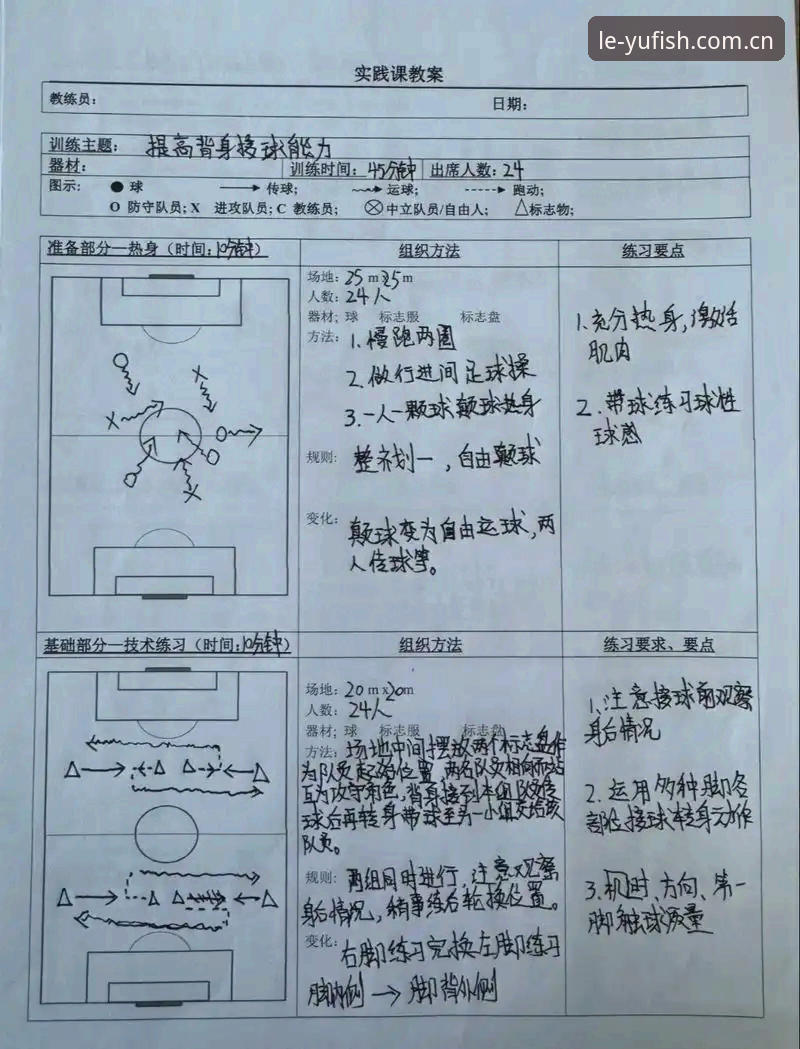 le-yufish.com.cn
实践课教案
教练员: 日期:
训练主题: 提高背身接球能力
器材: 训练时间: 45分钟 出席人数: 24
图示: 球 传球; 运球; 跑动;
O 防守队员; X 进攻队员; C 教练员; 中立队员/自由人; 标志物;
准备部分—热身（时间:10分钟）
组织方法
练习要点
场地: 25 m x25m
人数: 24人
器材; 球 标志服 标志盘
方法: 1.慢跑两圈
2.做行进间足球操
3.一人一颗球颠球热身
规则: 整齐划一，自由颠球
变化: 颠球变为自由运球,两
人传球等。
1.充分热身,激活
肌肉
2.带球练习球性
球感
O
X
X
O
O
O
X
基础部分—技术练习（时间:10分钟）
组织方法
练习要求、要点
场地: 20 m x20m
人数: 24人
器材; 球 标志服 标志盘
方法: 场地中间摆放两个标志盘作
为队员起始位置,两名队员相向而站
互为攻守角色,背身接到本组队员传
球后再转身带球至另一小组交给该
队员。
规则: 两组同时进行,注意观察
身后情况,稍事练后轮换位置。
变化: 右脚练习完换左脚练习
脚内侧→脚背外侧
1.注意接球前观察
身后情况
2.运用多种脚各
部位接球转身动作
3.机时、方向、第一
脚触球质量